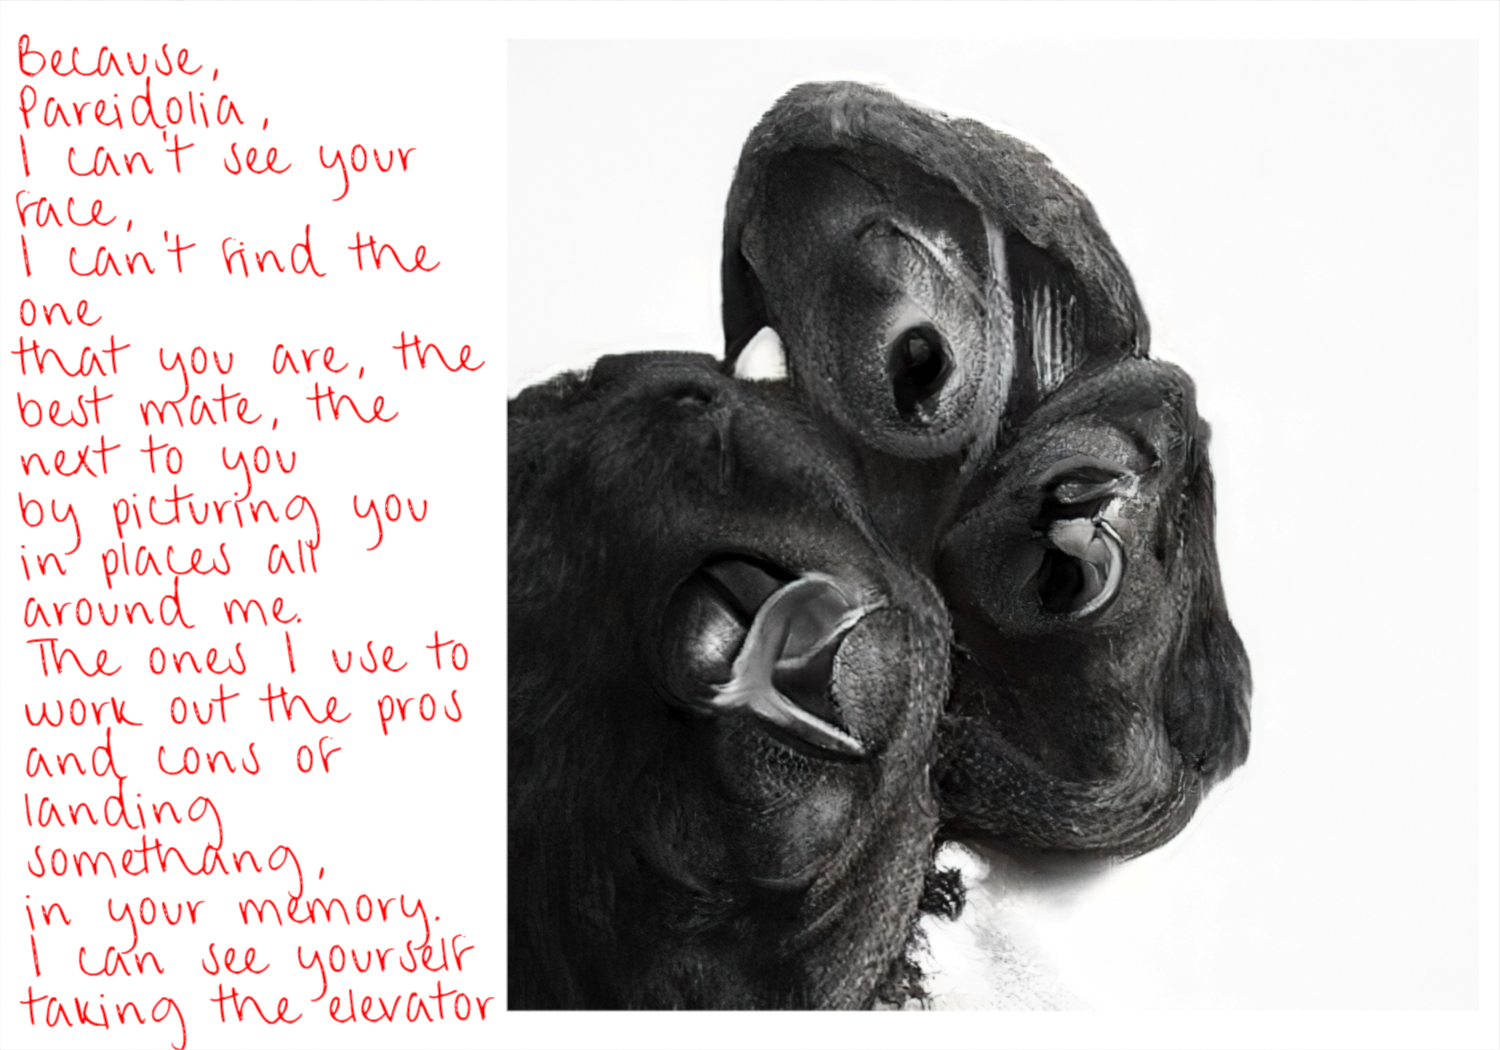 Because,
Pareidolia,
I can't see your
face,
I can't find the
one
that you are, the
best mate, the
next to you
by picturing you
in places all
around me.
The ones I use to
work out the pros
and cons of
landing
somethang,
in your memory.
I can see yourself
taking the elevator